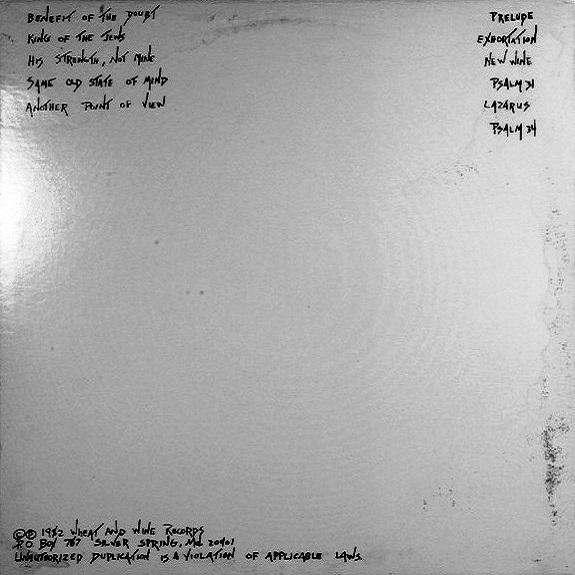 BENEFIT OF THE DOUBT
KING OF THE JEWS
HIS STRENGTH, NOT MINE
SAME OLD STATE OF MIND
ANOTHER POINT OF VIEW
PRELUDE
EXHORTATION
NEW WINE
PSALM 31
LAZARUS
PSALM 34
©℗ 1982 WHEAT AND WINE RECORDS
P.O. BOX 787 SILVER SPRING, Md. 20901
UNAUTHORIZED DUPLICATION IS A VIOLATION OF APPLICABLE LAWS.